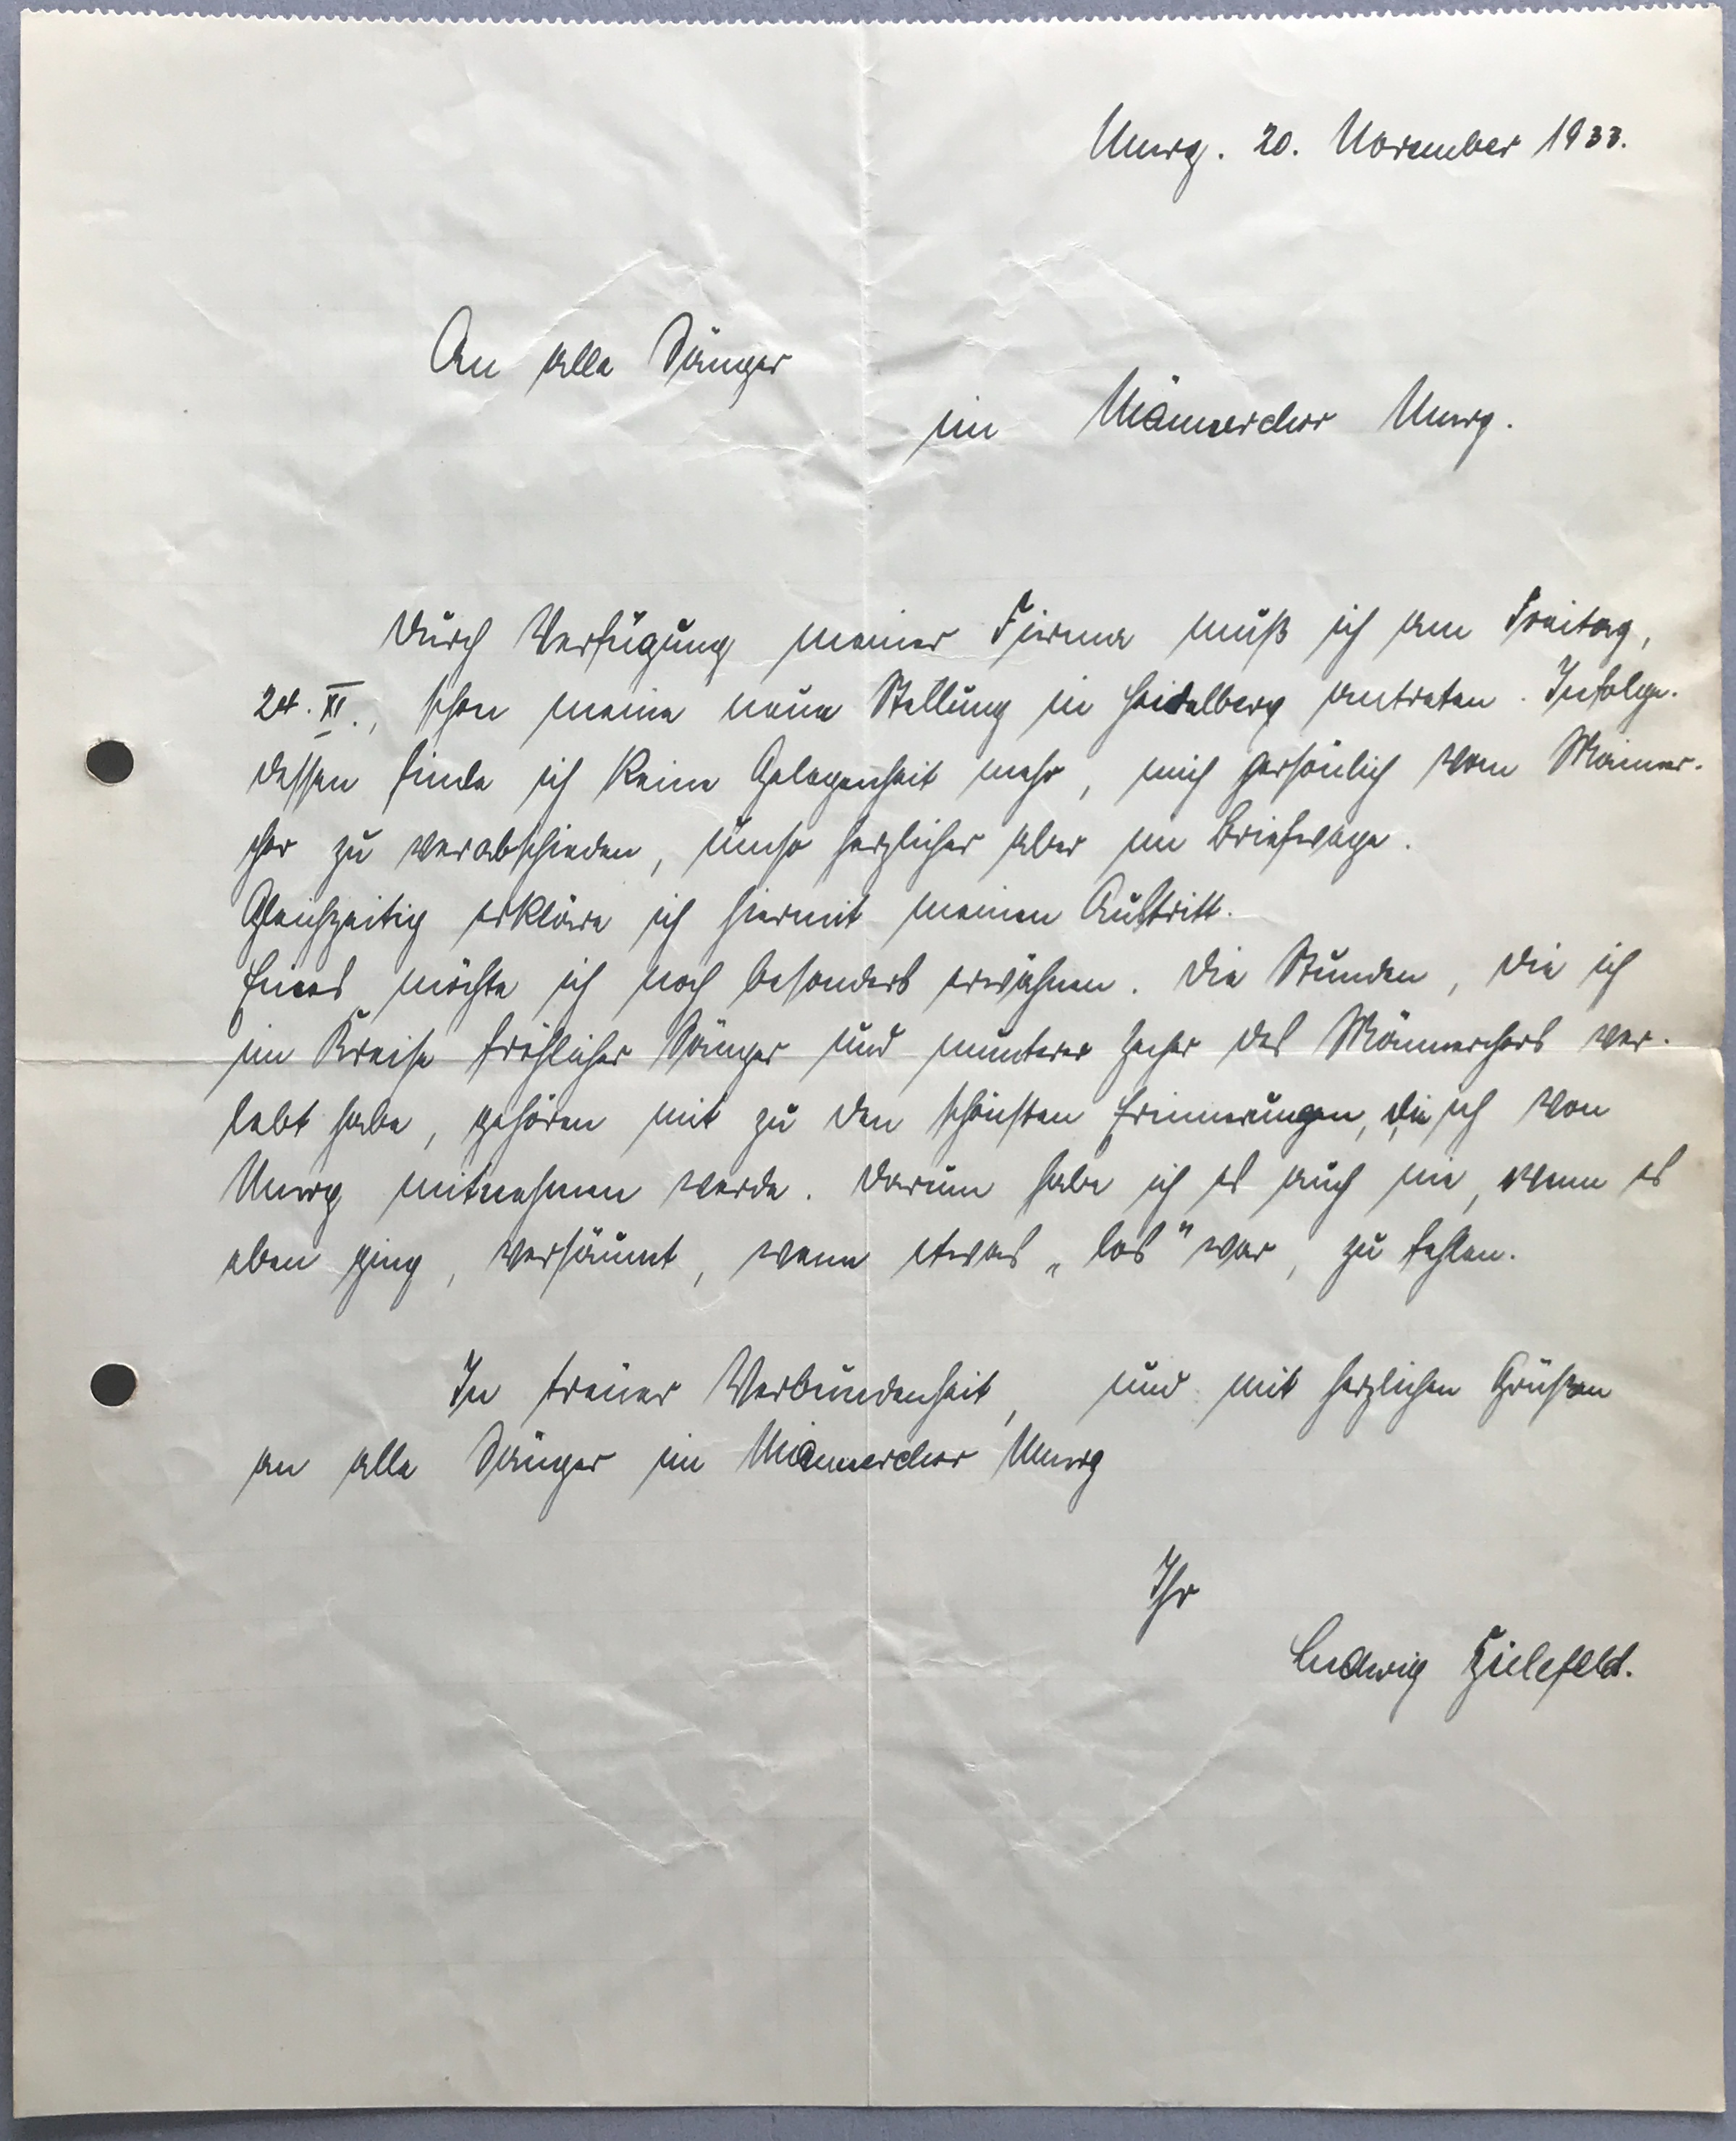 Murg. 20. November 1933.
An alle Sänger
im Männerchor Murg.
Durch Verfügung meiner Firma muß ich am Freitag,
24. XI., schon meine neue Stellung in Heidelberg antreten. Infolge-
dessen finde ich keine Gelegenheit mehr, mich persönlich vom Männer-
chor zu verabschieden, umso herzlicher aber im Briefwege.
Gleichzeitig erkläre ich hiermit meinen Austritt.
Eines möchte ich noch besonders erwähnen. Die Stunden, die ich
im Kreise fröhlicher Sänger und munterer Zecher des Männerchors ver-
lebt habe, gehören mit zu den schönsten Erinnerungen, die ich von
Murg mitnehmen werde. Darum habe ich es auch nie, wenn es
eben ging, versäumt, wenn etwas „los" war, zu fehlen.
In treuer Verbundenheit, und mit herzlichen Grüßen
an alle Sänger im Männerchor Murg
Ihr
Ludwig